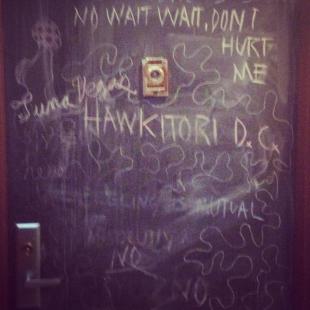 NO WAIT WAIT, DON'T
HURT
ME
Luna Vegas
HAWKITORI D.C.
IS MUTUAL
NO
NO